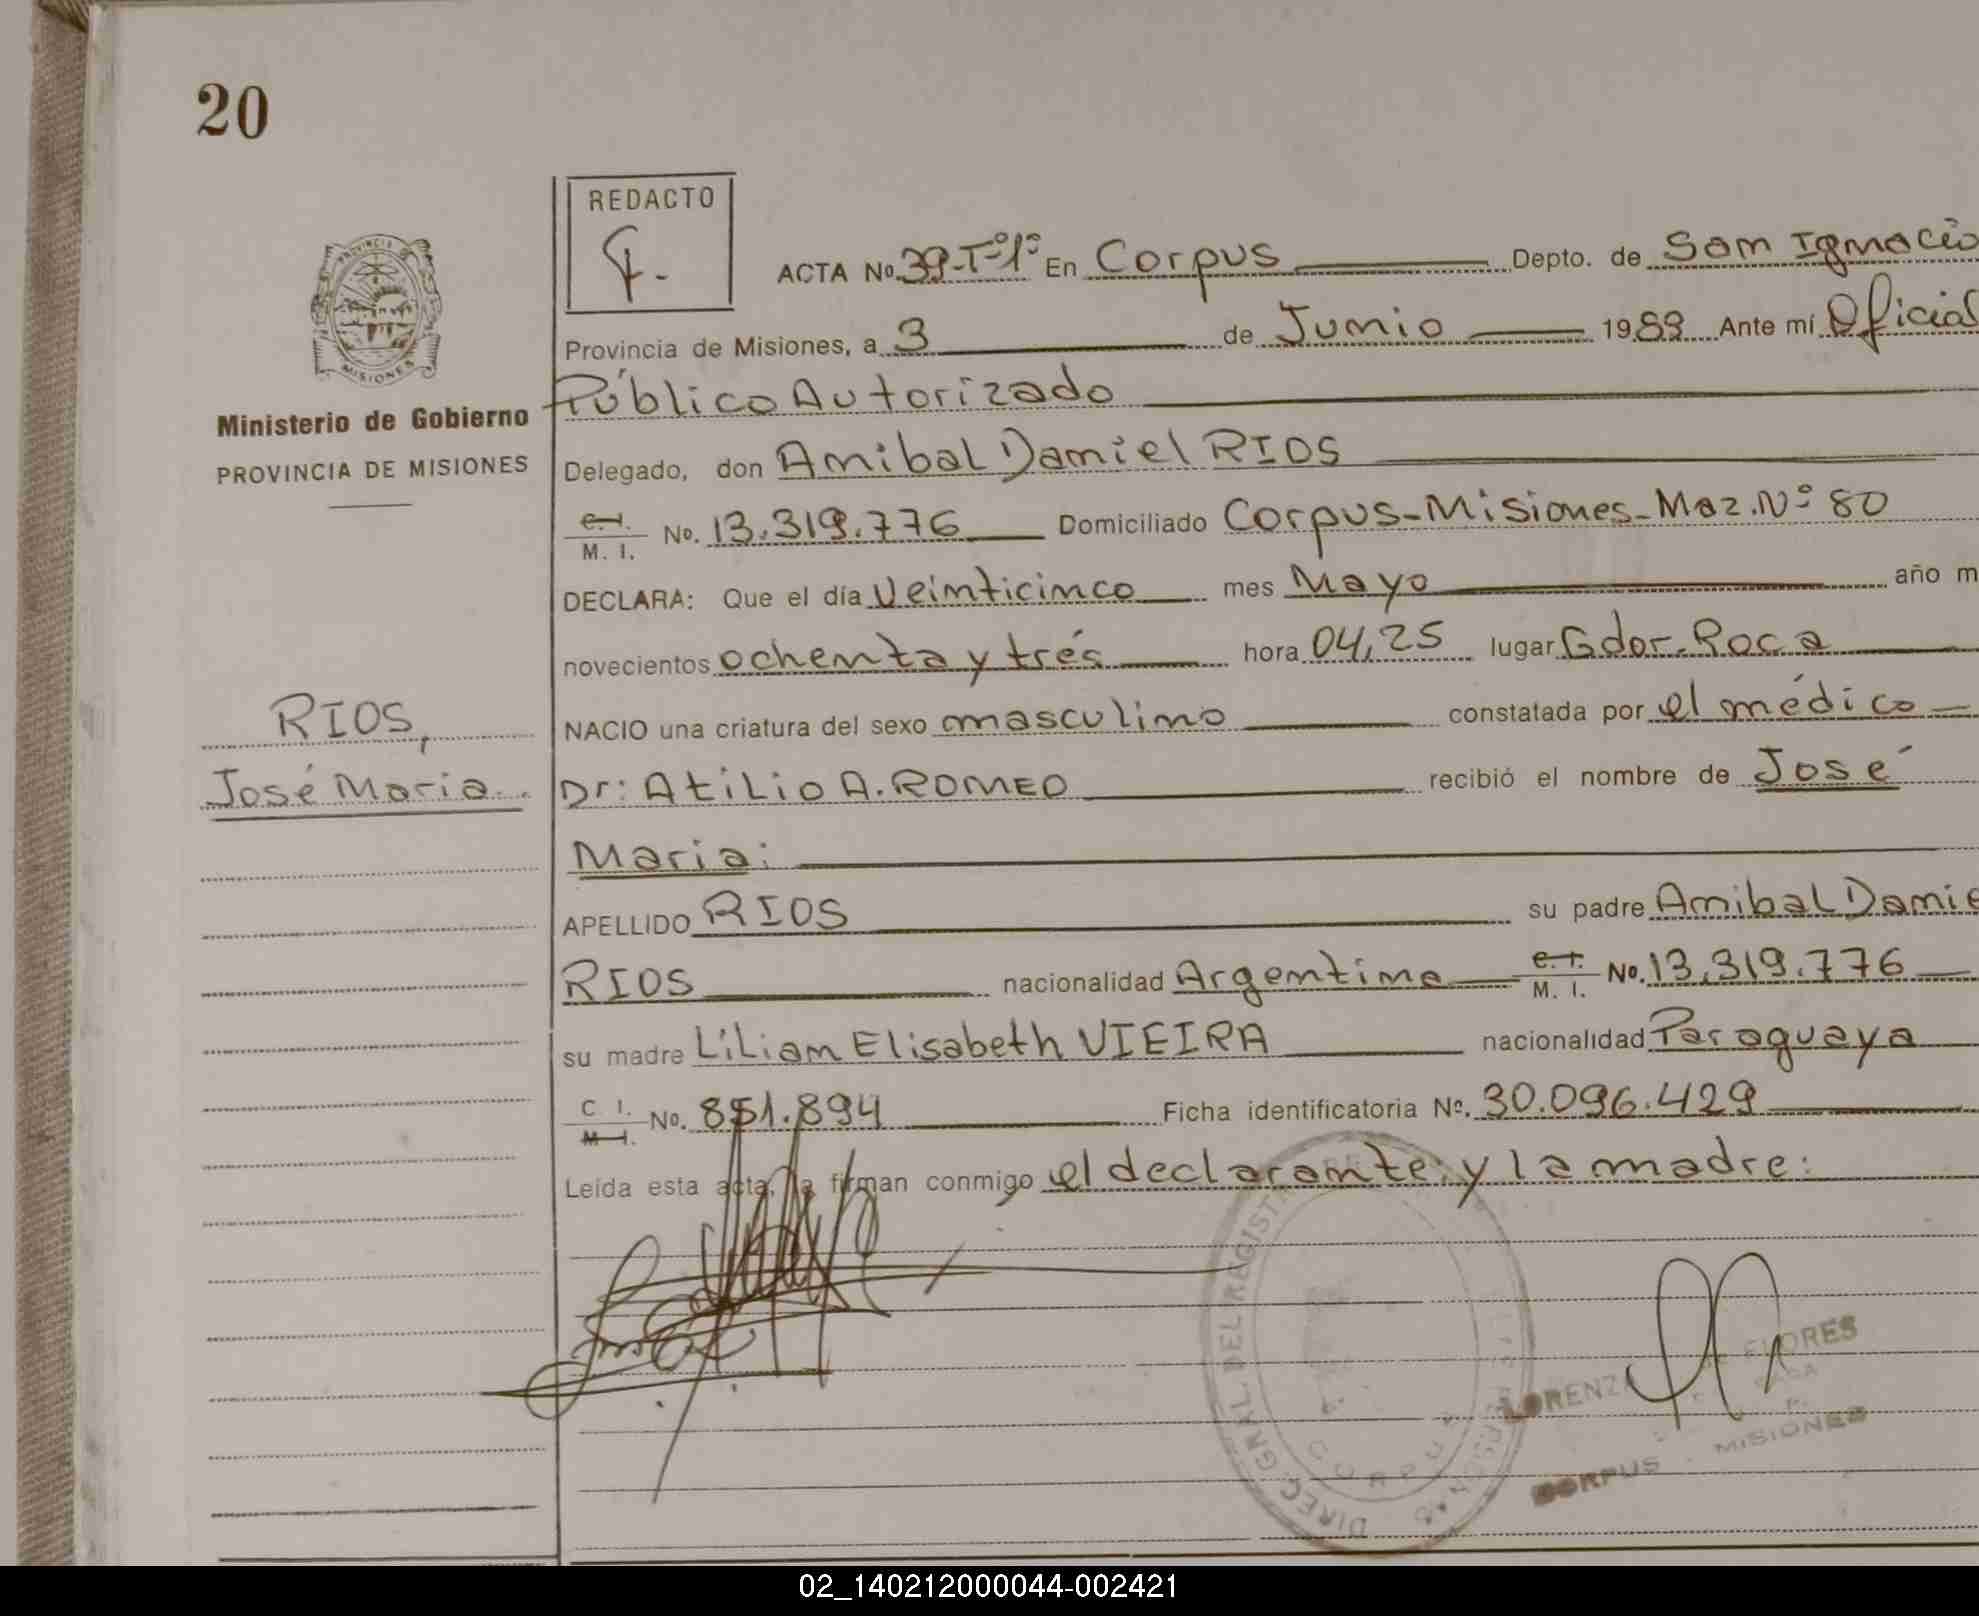 20
REDACTO
PROVINCIA DE
MISIONES
ACTA No. 39-Tº1º En Corpus Depto. de San Ignacio
Provincia de Misiones, a 3 de Junio 1983 Ante mí Oficial
Ministerio de Gobierno
PROVINCIA DE MISIONES
Público Autorizado
Delegado, don Anibal Daniel RIOS
C. I. M. I. No. 13.319.776 Domiciliado Corpus-Misiones-Maz.Nº 80
DECLARA: Que el día Veinticinco mes Mayo año m
novecientos ochenta y trés hora 04,25 lugar Gdor.Roca
RIOS,
José Maria
NACIO una criatura del sexo masculino constatada por el médico
Dr: Atilio A. ROMEO recibió el nombre de José
Maria:
APELLIDO RIOS su padre Anibal Danie
RIOS nacionalidad Argentina C. I. M. I. No. 13.319.776
su madre Lilian Elisabeth VIEIRA nacionalidad Paraguaya
C I. M I. No. 851.894 Ficha identificatoria Nº. 30.096.429
Leída esta acta, la firman conmigo el declarante y la madre:
DIREC. GRAL. DEL REGISTR
CORPUS
FLORES
CORPUS - MISIONES
02_140212000044-002421